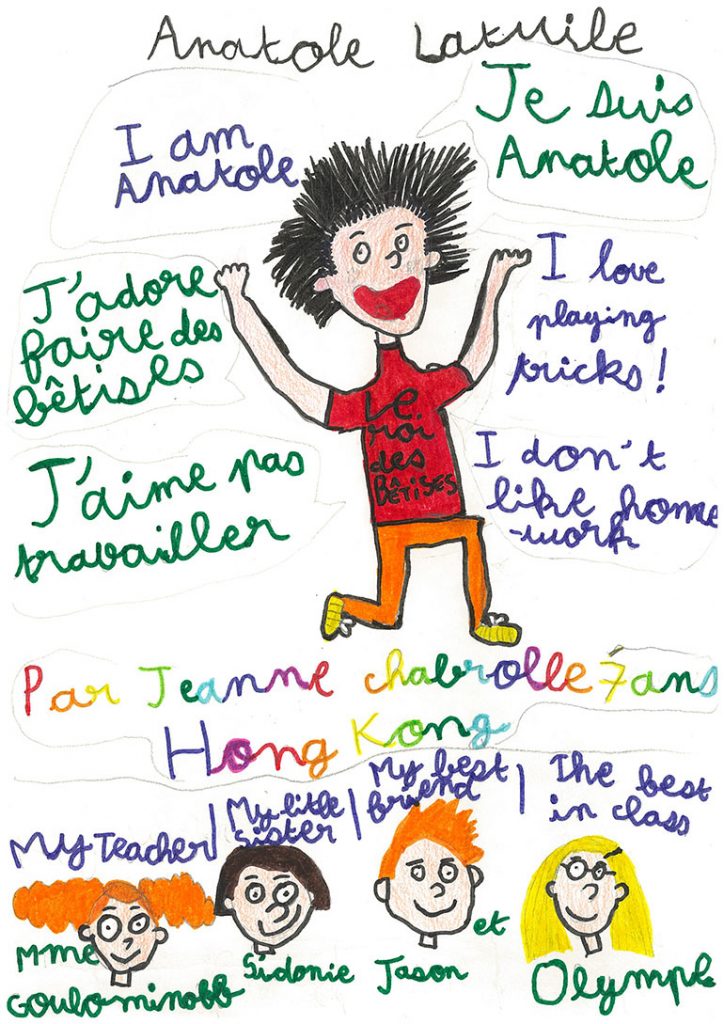 Anatole Latuile
I am
Anatole
Je suis
Anatole
J'adore
faire des
bêtises
I love
playing
tricks!
Le
roi
des
BÊTISES
J'aime pas
travailler
I don't
like home
-work
Par Jeanne chabrolle 7ans
Hong Kong
My Teacher
My little
sister
My best
friend
The best
in class
Mme
Goulominobb
Sidonie
Jason
et
Olympe